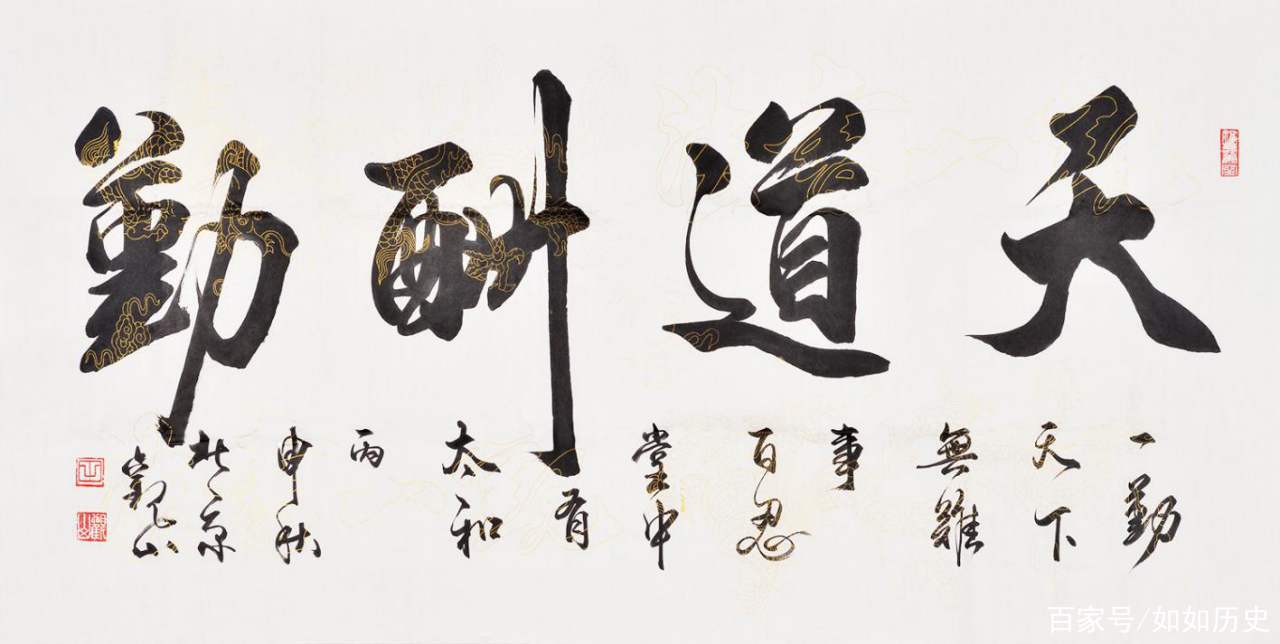 天道酬勤
一勤
天下
無難
事
百忍
堂中
有
太和
丙
申秋
北京
觀山
百家号/如如历史